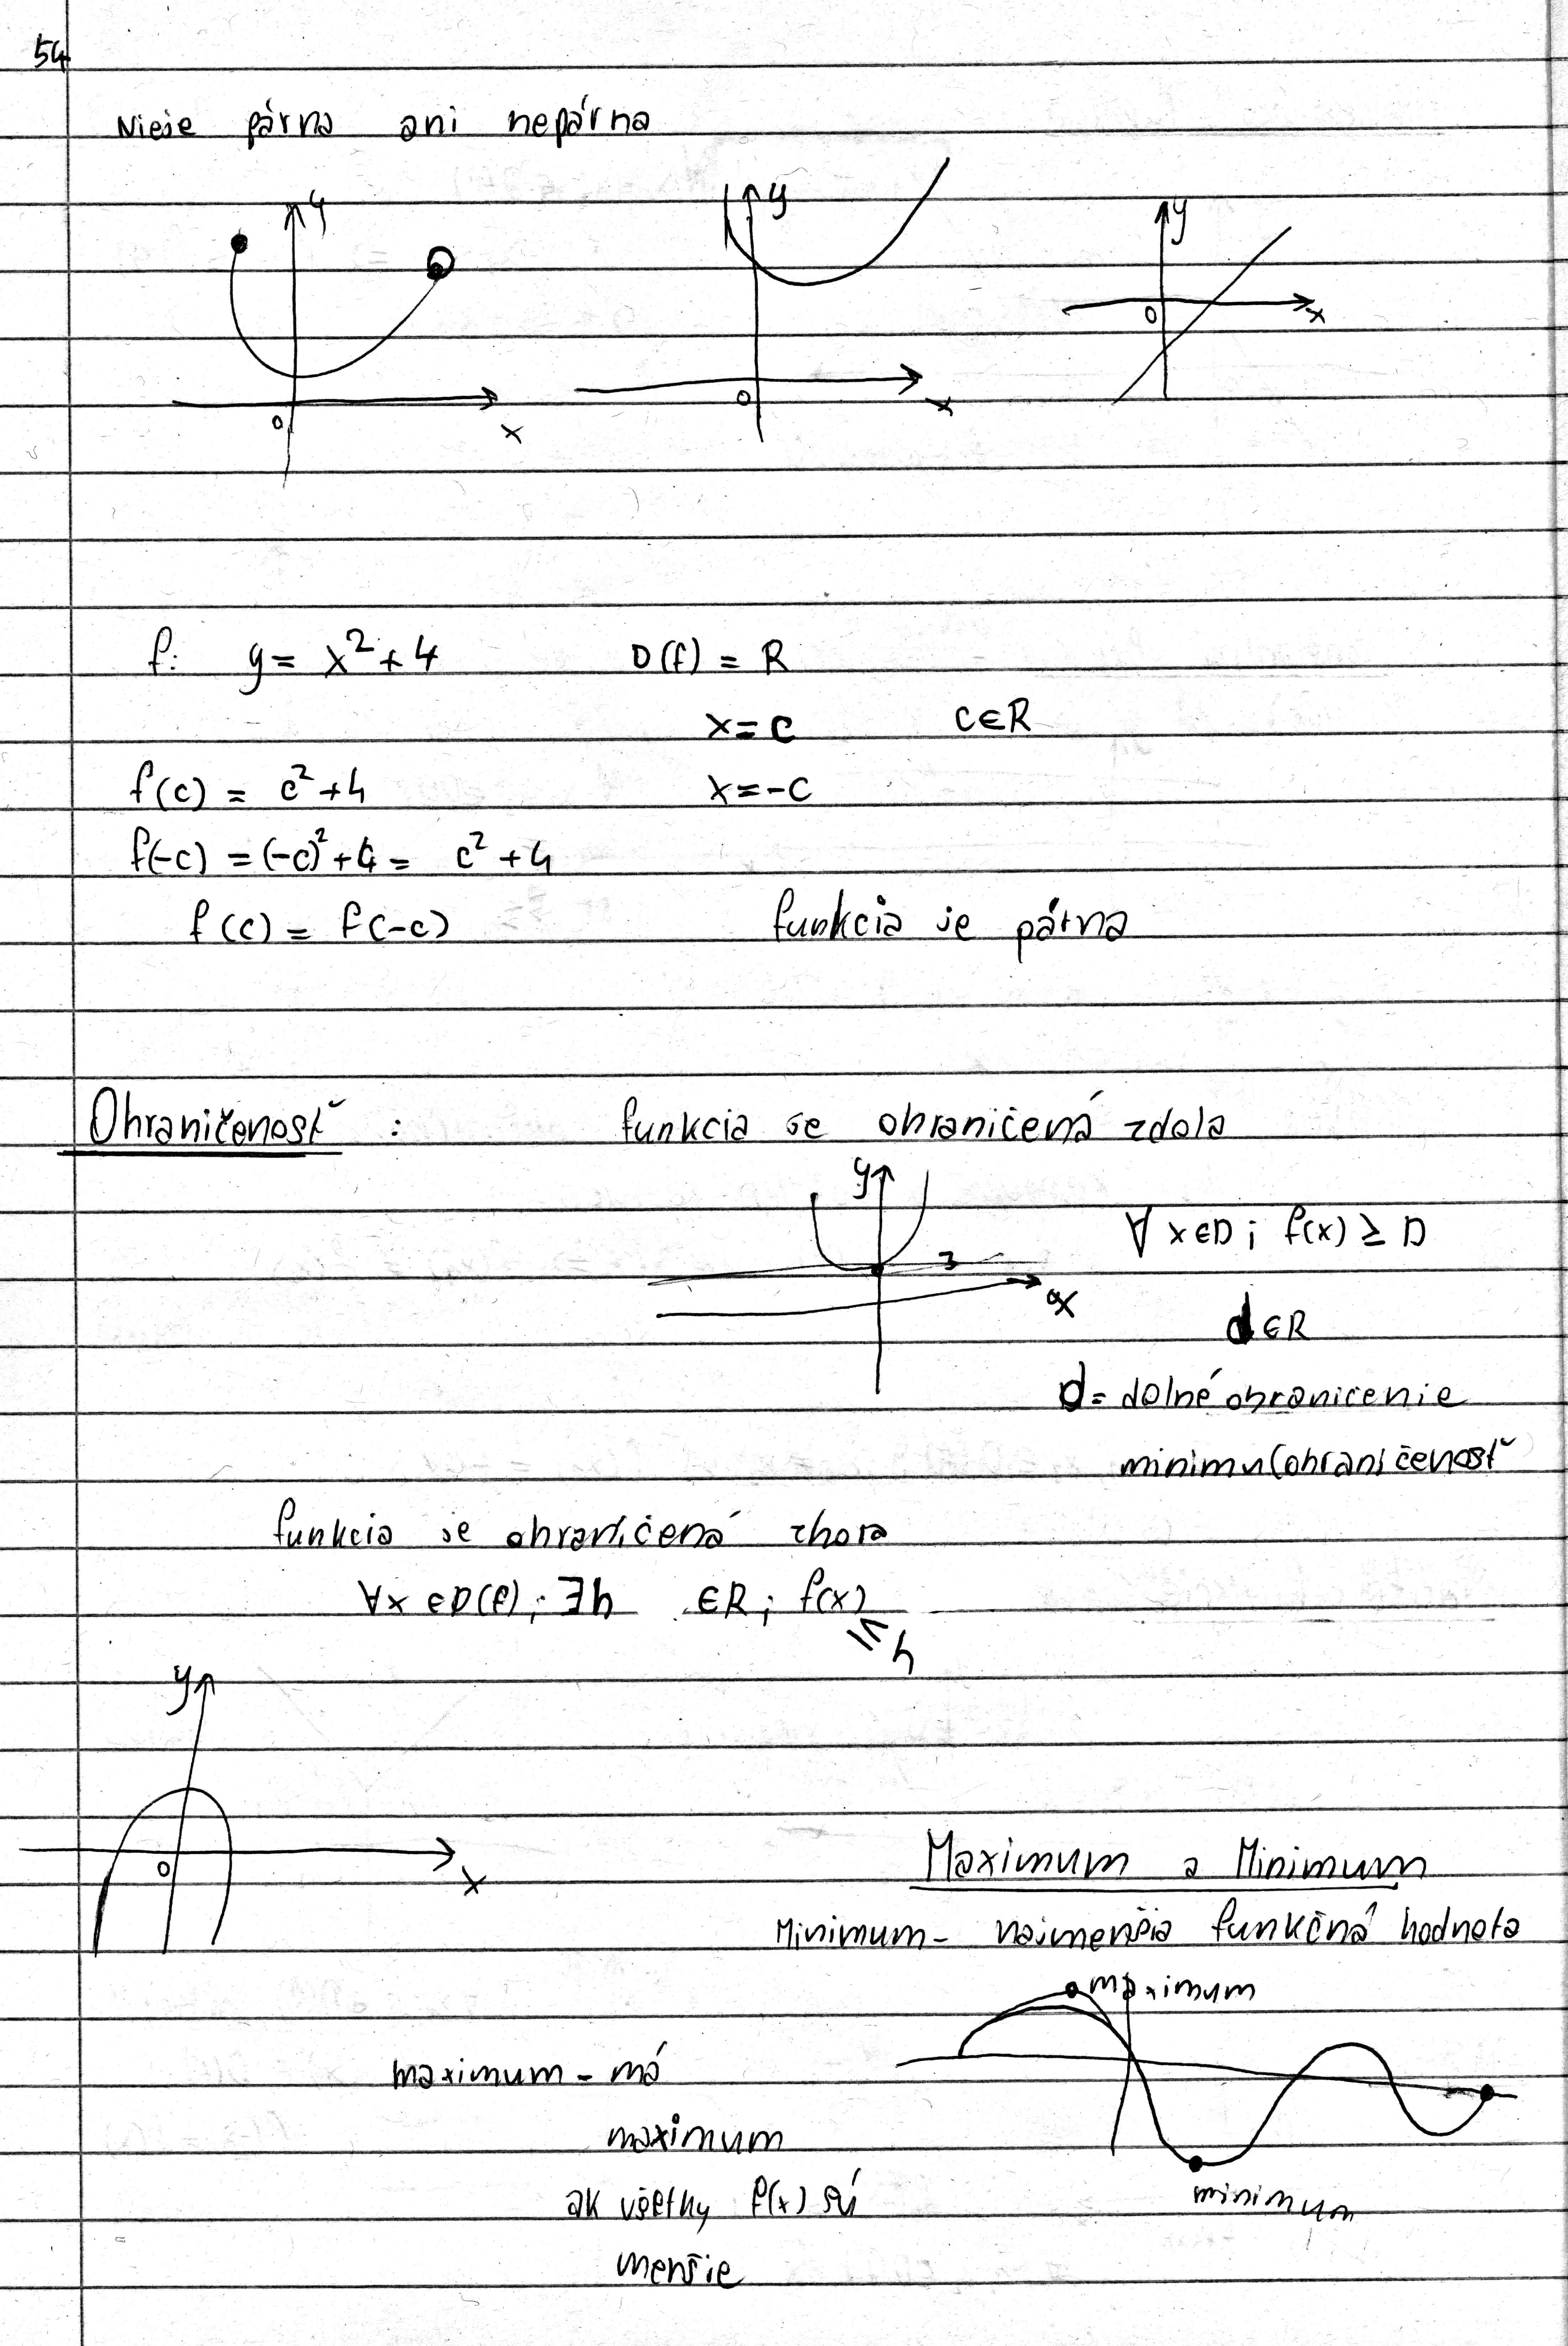 54
Nieje párna ani nepárna
y y y
0 x 0 x 0 x
f: y = x² + 4 D(f) = R
x = c c∈R
f(c) = c² + 4 x = -c
f(-c) = (-c)² + 4 = c² + 4
f(c) = f(-c) funkcia je párna
Ohraničenosť : funkcia je ohraničená zdola
y
∀ x∈D ; f(x) ≥ D
x
d∈R
d = dolné ohranicenie
minimu(ohraničenosť
funkcia je ohraničená zhora
∀x ∈D(f) ; ∃h ∈R ; f(x) ≤ h
y
0 x
Maximum a Minimum
Minimum - najmenšia funkčná hodnota
maximum
maximum - má
maximum
ak všetky f(x) sú
minimum
menšie